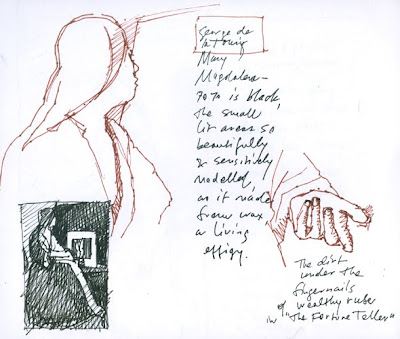 George de
la Tour
Mary
Magdalena –
70% is black,
the small
lit areas so
beautifully
& sensitively
modelled
as if made
from wax,
a living
effigy.
The dirt
under the
fingernails
of wealthy
in "The Fortune Teller"